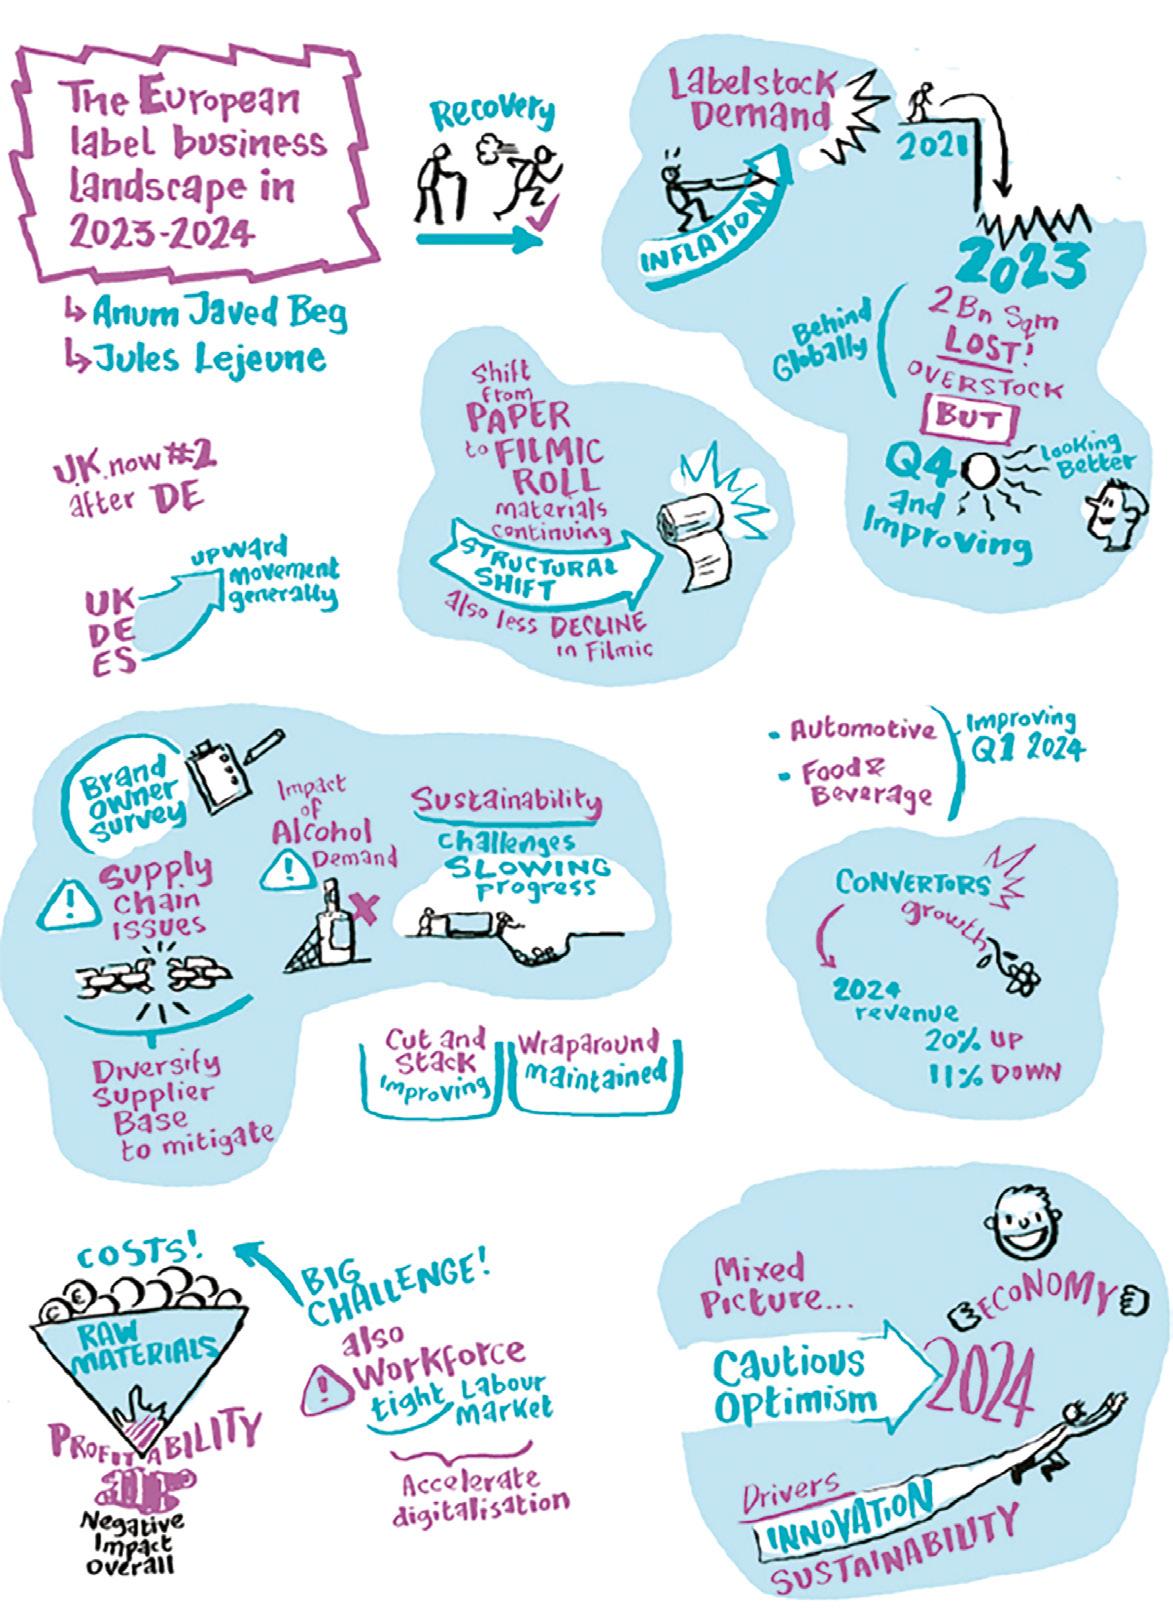 The European
label business
landscape in
2023-2024
Anum Javed Beg
Jules Lejeune
Recovery
Labelstock
Demand
INFLATION
2021
2023
Behind
Globally
2 Bn Sqm
LOST!
OVERSTOCK
BUT
Q4
and
Improving
Looking
Better
Shift
from
PAPER
to FILMIC
ROLL
materials
continuing
STRUCTURAL
SHIFT
also less DECLINE
in Filmic
UK now #2
after DE
upward
movement
generally
UK
DE
ES
Automotive
Food &
Beverage
Improving
Q1 2024
Brand
owner
survey
Supply
chain
issues
Diversify
Supplier
Base
to mitigate
Impact
of
Alcohol
Demand
Sustainability
challenges
SLOWING
progress
Cut and
Stack
improving
Wraparound
maintained
CONVERTORS
growth
2024
revenue
20% UP
11% DOWN
COSTS!
€
€
RAW
MATERIALS
PROFITABILITY
Negative
Impact
overall
BIG
CHALLENGE!
also
Workforce
tight Labour
market
Accelerate
digitalisation
Mixed
Picture...
ECONOMY
Cautious
Optimism
2024
Drivers
INNOVATION
SUSTAINABILITY